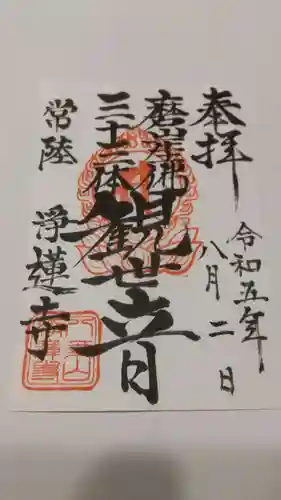 奉拝
令和五年
八月二日
磨崖佛
三十三体
観世音
常陸
浄蓮寺